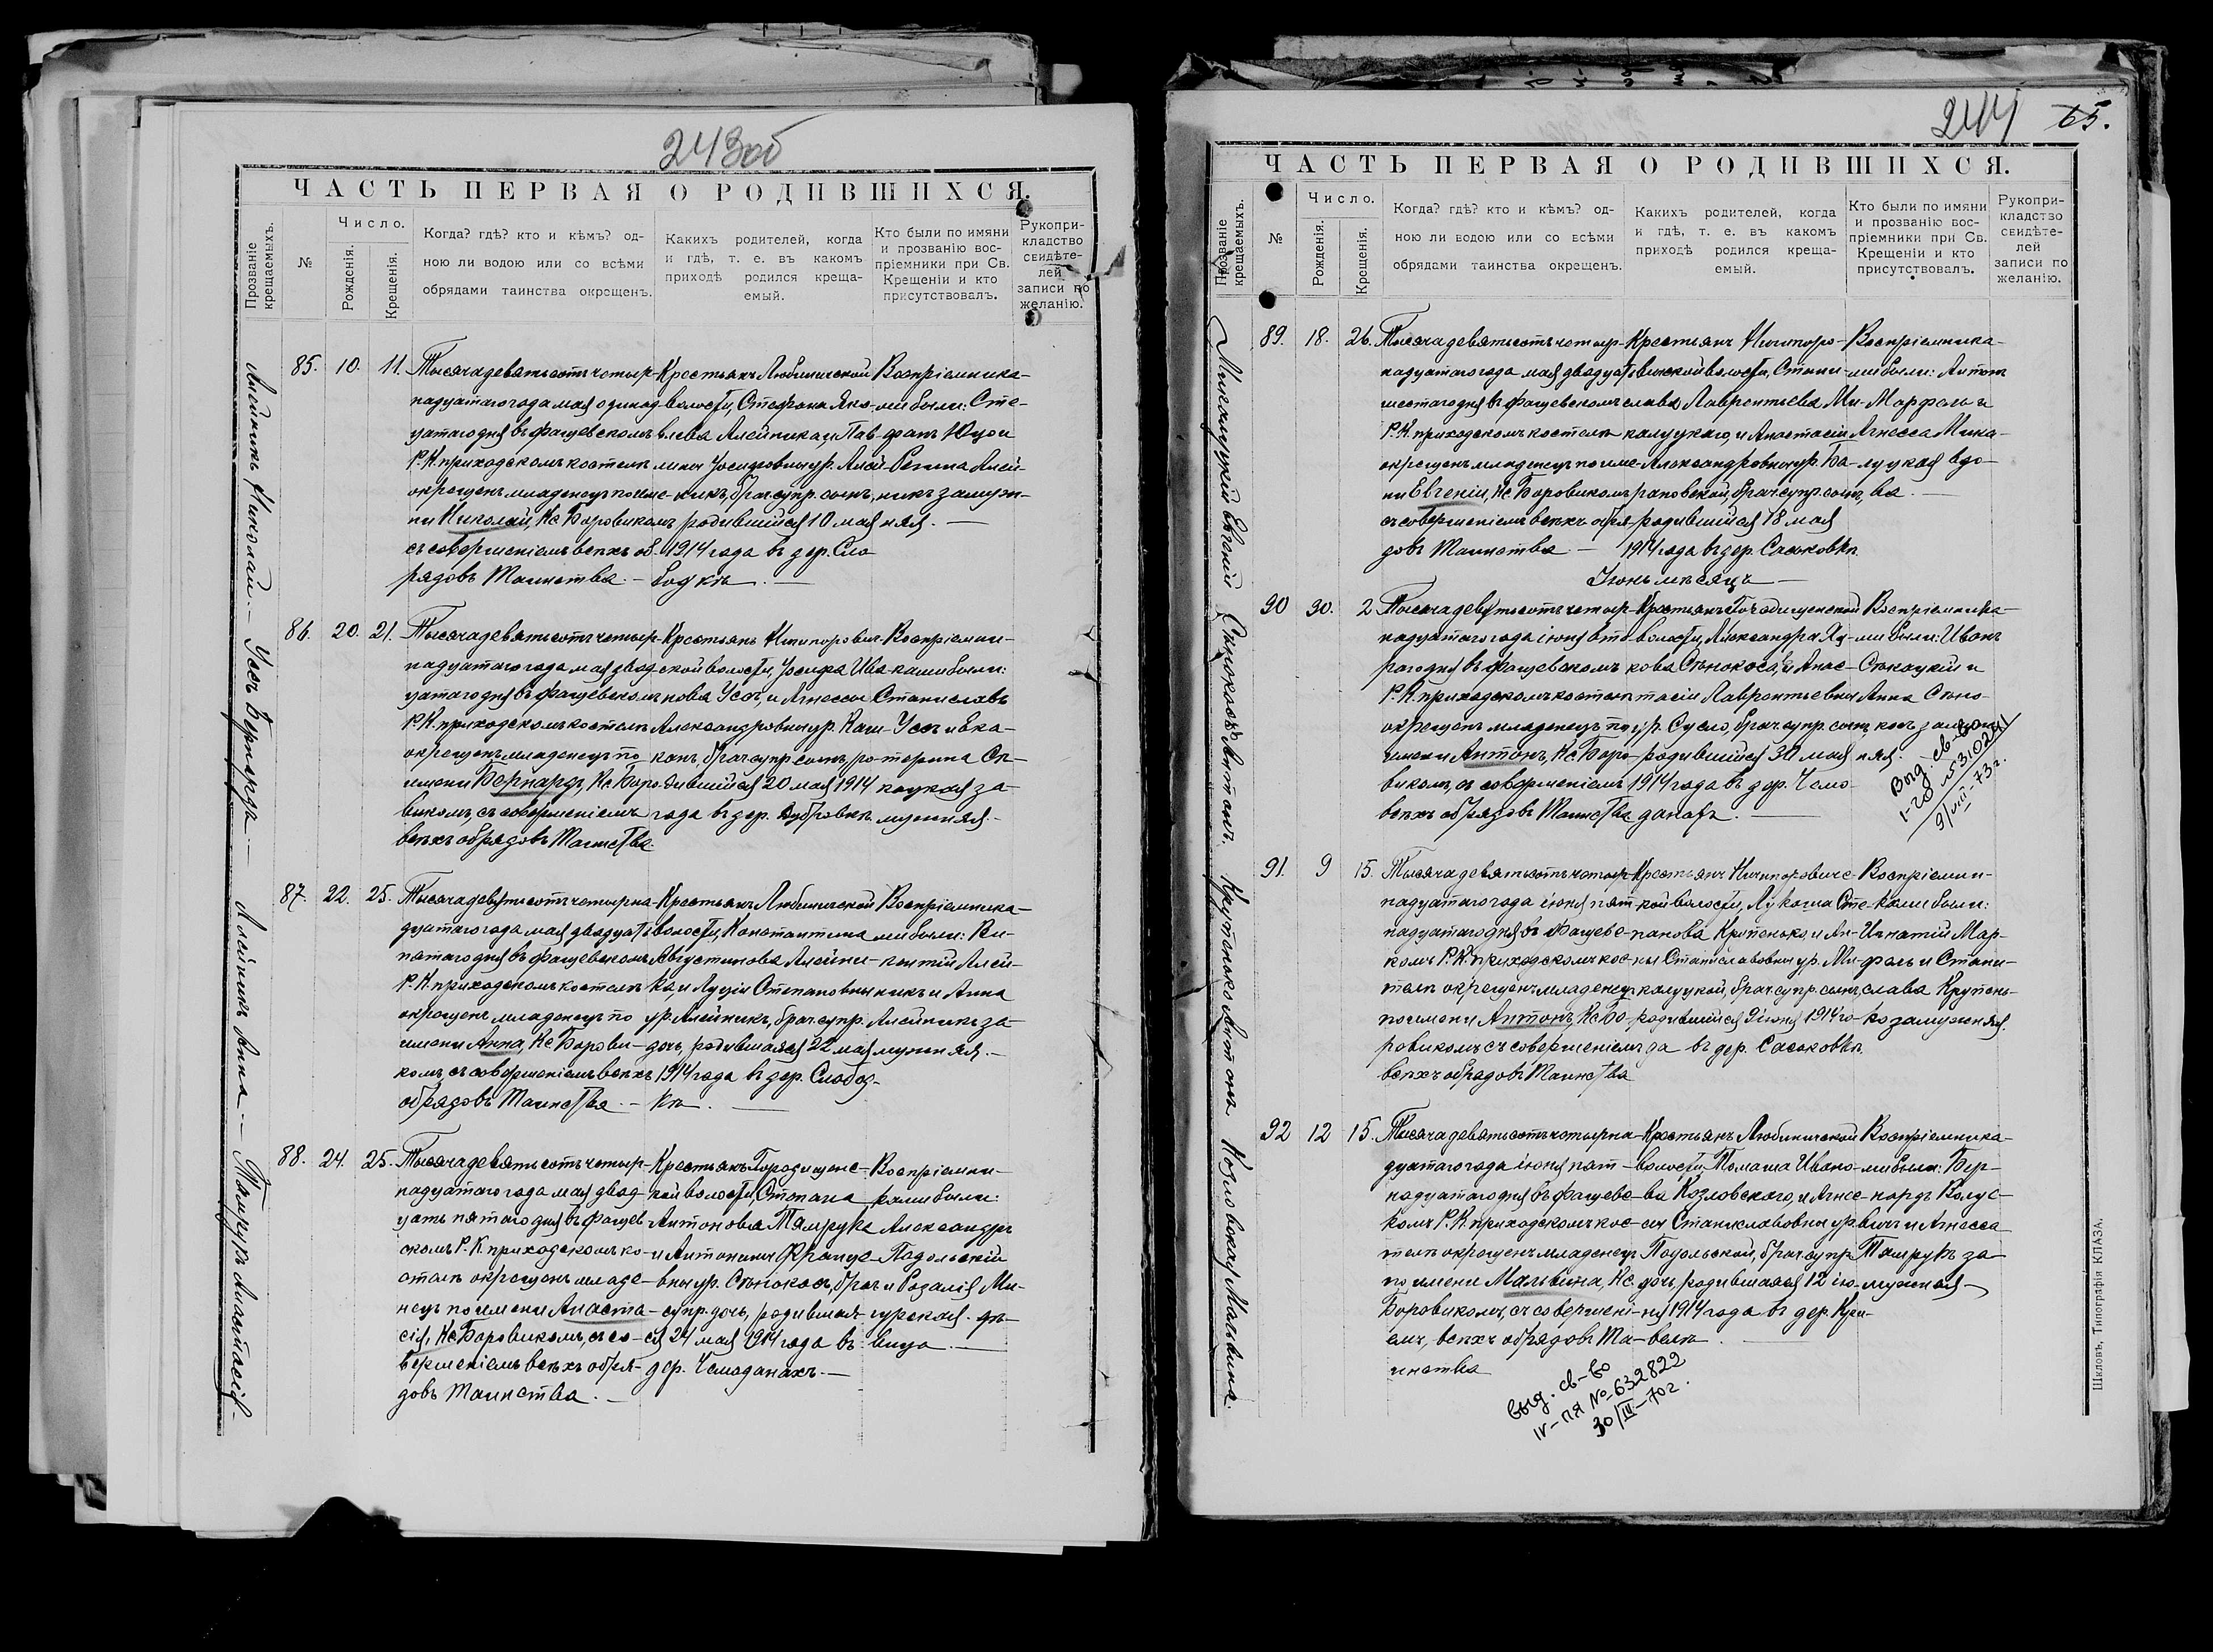 243об
ЧАСТЬ ПЕРВАЯ О РОДИВШИХСЯ.
Прозваніе крещаемыхъ.
№
Число.
Рожденія.
Крещенія.
Когда? гдѣ? кто и кѣмъ? од-
ною ли водою или со всѣми
обрядами таинства окрещенъ.
Какихъ родителей, когда
и гдѣ, т. е. въ какомъ
приходѣ родился креща-
емый.
Кто были по имяни
и прозванію вос-
пріемники при Св.
Крещеніи и кто
присутствовалъ.
Рукопри-
кладство
свидѣте-
лей
записи по
желанію.
Алейникъ Николай.
85. 10. 11.
Тысяча девятьсотъ четыр-
надцатаго года мая одинад-
цатаго дня въ Фащевскомъ
Р. К. приходскомъ костелѣ
окрещенъ младенецъ по име-
ни Николай, Кс. Боровикомъ
съ совершеніемъ всѣхъ об-
рядовъ Таинства.
Крестьянъ Любиничской
волости, Стефана Яко-
влева Алейника, и Пав-
лины Іосифовны ур. Алей-
никъ, брач. супр. сынъ,
родившійся 10 мая
1914 года въ дер. Сло-
бодкѣ.
Воспріемника-
ми были: Сте-
фанъ Юцо и
Регина Алей-
никъ замуж-
няя.
Усъ Бернардъ.
86. 20. 21.
Тысяча девятьсотъ четыр-
надцатаго года мая двад-
цатаго дня въ Фащевскомъ
Р. К. приходскомъ костелѣ
окрещенъ младенецъ по
имени Бернардъ, Кс. Боро-
викомъ, съ совершеніемъ
всѣхъ обрядовъ Таинства.
Крестьянъ Ничипорович-
ской волости, Іосифа Ива-
нова Усъ, и Агнессы
Александровны ур. Каш-
канъ, брач. супр. сынъ, ро-
дившійся 20 мая 1914
года въ дер. Дубровкѣ.
Воспріемни-
ками были:
Станиславъ
Усъ и Ека-
терина Сѣ-
коцкая за-
мужняя.
Алейникъ Анна.
87. 22. 25.
Тысяча девятьсотъ четырна-
дцатаго года мая двадцать
пятаго дня въ Фащевскомъ
Р. К. приходскомъ костелѣ
окрещенъ младенецъ по
имени Анна, Кс. Борови-
комъ, съ совершеніемъ всѣхъ
обрядовъ Таинства.
Крестьянъ Любиничской
волости, Константина
Августинова Алейни-
ка, и Луціи Степановны
ур. Алейникъ, брач. супр.
дочь, родившаяся 22 мая
1914 года въ дер. Слобод-
кѣ.
Воспріемника-
ми были: Ви-
кентій Алей-
никъ и Анна
Алейникъ за-
мужняя.
Тамрукъ Анастасія
88. 24. 25.
Тысяча девятьсотъ четыр-
надцатаго года мая двад-
цать пятаго дня въ Фащев-
скомъ Р. К. приходскомъ ко-
стелѣ окрещенъ младе-
нецъ по имени Анаста-
сія, Кс. Боровикомъ, съ со-
вершеніемъ всѣхъ обря-
довъ Таинства.
Крестьянъ Городищенс-
кой волости, Степана
Антонова Тамрука
и Антонины Франце-
вны ур. Сѣнокосъ, брач.
супр. дочь, родившая-
ся 24 мая 1914 года въ
дер. Чемоданахъ.
Воспріемни-
ками были:
Александръ
Подольскій
и Розалія Ми-
гурская дѣ-
вица.
244 65.
ЧАСТЬ ПЕРВАЯ О РОДИВШИХСЯ.
Прозваніе крещаемыхъ.
№
Число.
Рожденія.
Крещенія.
Когда? гдѣ? кто и кѣмъ? од-
ною ли водою или со всѣми
обрядами таинства окрещенъ.
Какихъ родителей, когда
и гдѣ, т. е. въ какомъ
приходѣ родился креща-
емый.
Кто были по имяни
и прозванію вос-
пріемники при Св.
Крещеніи и кто
присутствовалъ.
Рукопри-
кладство
свидѣте-
лей
записи по
желанію.
Микалуцкій Евгеній
89. 18. 26.
Тысяча девятьсотъ четыр-
надцатаго года мая двадцать
шестаго дня въ Фащевскомъ
Р. К. приходскомъ костелѣ
окрещенъ младенецъ по име-
ни Евгеній, Кс. Боровикомъ
съ совершеніемъ всѣхъ обря-
довъ Таинства
Крестьянъ Ничипоро-
вичской волости, Стани-
слава Лаврентьева Ми-
калуцкаго, и Анастасіи
Александровны ур. Ба-
рановской, брач. супр. сынъ,
родившійся 18 мая
1914 года въ дер. Сасковкѣ.
Воспріемника-
ми были: Антон
Марфель и
Агнесса Мика-
луцкая вдо-
ва.
Іюнь мѣсяцъ
Сѣнокосъ Антонъ.
90 30. 2
Тысяча девятьсотъ четыр-
надцатаго года іюня вто-
рого дня въ Фащевскомъ
Р. К. приходскомъ костелѣ
окрещенъ младенецъ по
имени Антонъ, Кс. Боро-
викомъ, съ совершеніемъ
всѣхъ обрядовъ Таинства
Крестьянъ Городищенской
волости, Александра Яц-
кова Сѣнокоса, и Анас-
тасіи Лаврентьевны
ур. Сусло, брач. супр. сынъ,
родившійся 30 мая
1914 года въ дер. Чемо-
данахъ.
Воспріемника-
ми были: Иванъ
Сѣкацкій и
Анна Сѣно-
косъ замуж-
няя.
Выд. св-во
9/VIII-73г.
Крупенько Антонъ
91. 9 15.
Тысяча девятьсотъ четыр-
надцатаго года іюня пят-
надцатаго дня въ Фащевс-
комъ Р. К. приходскомъ кос-
телѣ окрещенъ младенецъ
по имени Антонъ, Кс. Бо-
ровикомъ съ совершеніемъ
всѣхъ обрядовъ Таинства
Крестьянъ Ничипоровичс-
кой волости, Лукаша Сте-
панова Крупенько, и Ан-
ны Станиславовны ур. Ми-
калуцкой, брач. супр. сынъ,
родившійся 9 іюня 1914 го-
да въ дер. Сасковкѣ.
Воспріемни-
ками были:
Игнатій Мар-
фель и Стани-
слава Крупень-
ко замужняя.
Козловская Мальвина.
92 12 15.
Тысяча девятьсотъ четырна-
дцатаго года іюня пят-
надцатаго дня въ Фащевс-
комъ Р. К. приходскомъ кос-
телѣ окрещенъ младенецъ
по имени Мальвина, Кс.
Боровикомъ, съ совершені-
емъ, всѣхъ обрядовъ Та-
инства
Крестьянъ Любиничской
волости, Томаша Ивано-
ва Козловскаго, и Агнес-
сы Станиславовны ур.
Подольской, брач. супр.
дочь, родившаяся 12 ію-
ня 1914 года въ дер.
Воспріемника-
ми были: Бер-
нардъ Валус-
вичъ и Агнесса
Тамрукъ за-
мужняя
выд. св-во
IV-ПЯ № 632822
30/III-70г.
Шкловъ, Типографія КЛАЗА.